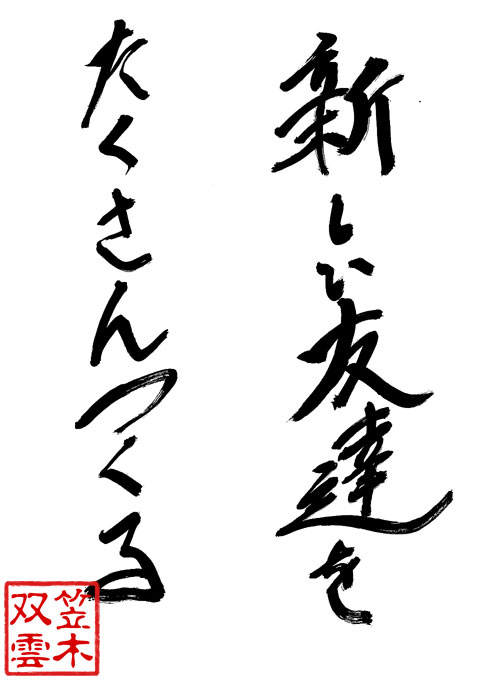 新しい友達を
たくさんつくる
笠木
双雲